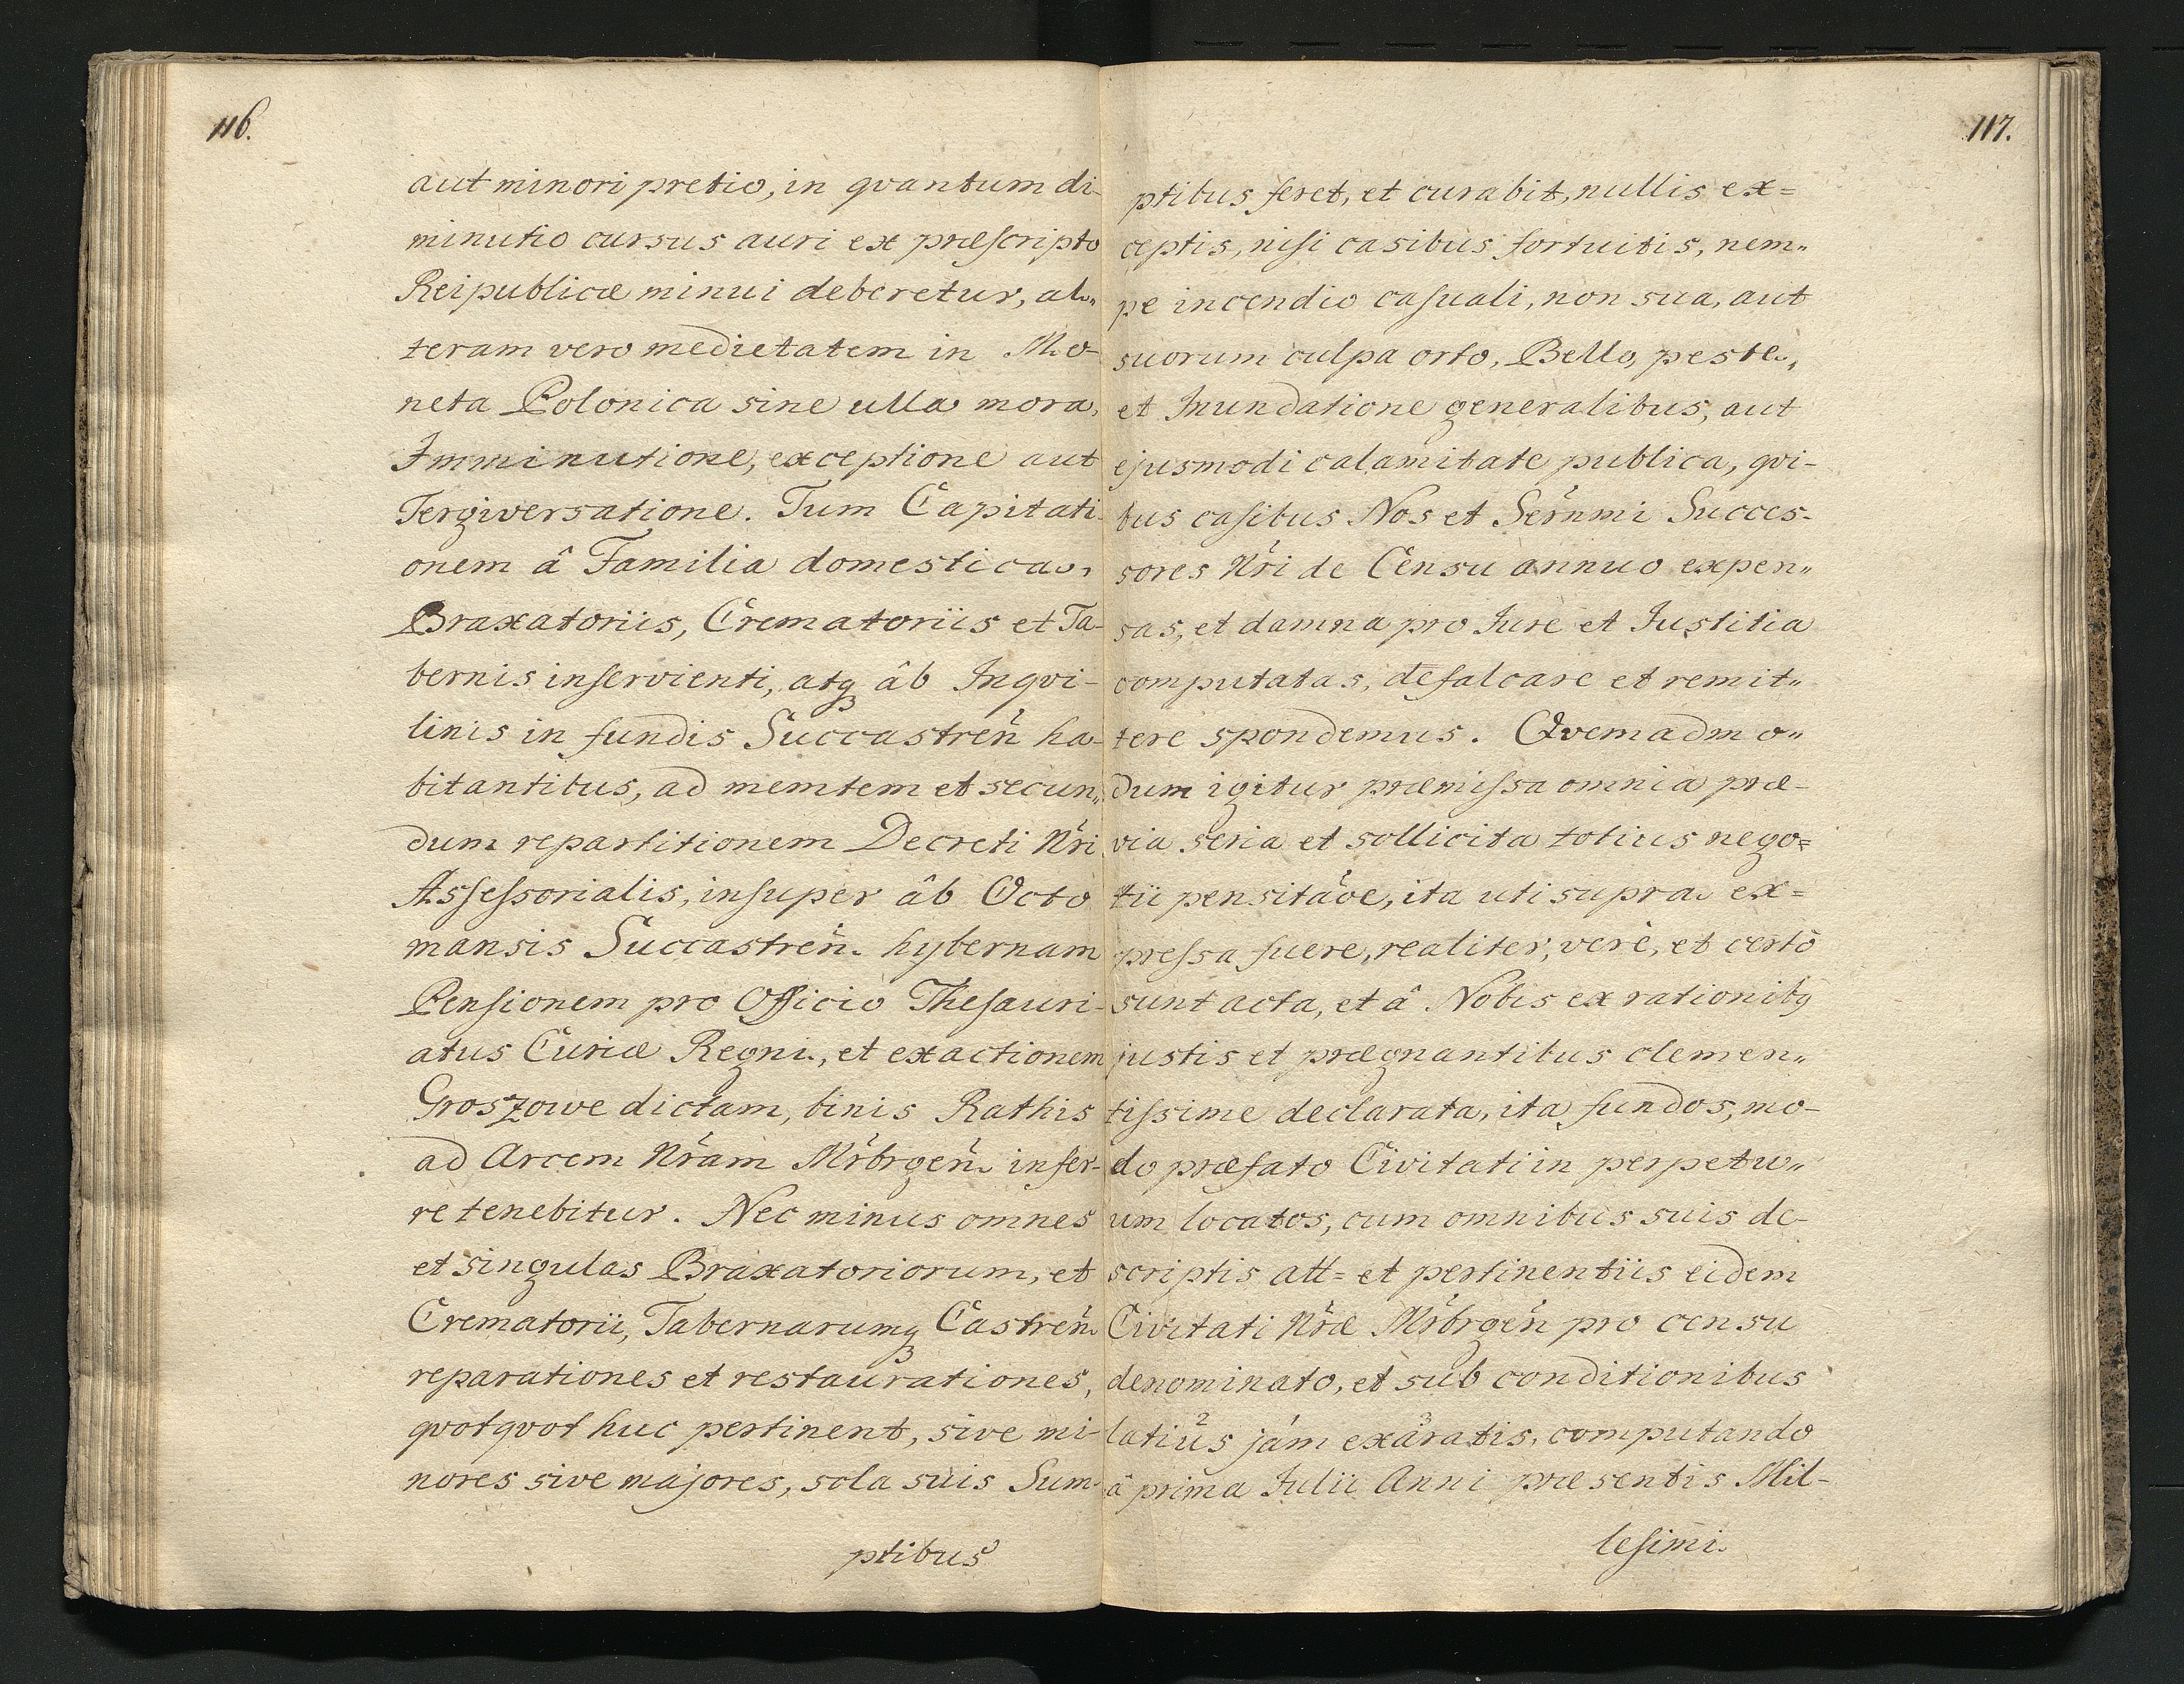 116.
aut minori pretio, in qvantum di-
minutio cursus auri ex præscripto
Reipublicæ minui deberetur, al„
teram vero medietatem in Mo-
neta Polonica sine ulla mora,
Imminutione, exceptione aut
Tergiversatione. Tum Capitati-
onem â Familia domestica,
Braxatoriis, Crematoriis et Ta-
bernis inservienti, atq âb Inqvi-
linis in fundis Succastren̄ ha-
bitantibus, ad memtem et secun„
dum repartitionem Decreti Nr̄i
Assessorialis, insuper âb Octo
mansis Succastren̄. hybernam
Pensionem pro Officio Thesauri-
atus Curiæ Regni, et exactionem
Groszowe dictam, binis Rathis
ad Arcem Nr̄am Mr̄brgen̄. infer-
re tenebitur. Nec minus omnes
et singulas Braxatoriorum, et
Crematorii, Tabernarumq Castren̄.
reparationes et restaurationes,
qvotqvot huc pertinent, sive mi-
nores sive majores, sola suis Sum-
ptibus
117.
ptibus feret, et curabit, nullis ex=
ceptis, nisi casibus fortuitis, nem„
pe incendio casuali, non sua, aut
suorum culpa orto, Bello, peste,
et Inundatione generalibus, aut
ejusmodi calamitate publica, qvi-
bus casibus Nos et Ser̄nmi Succes-
sores Nr̄i de Censu annuo expen„
sas, et damna pro Jure et Justitia
computatas, defalcare et remit„
tere spondemus. Qvemadmo„
dum igitur præmissa omnia præ-
via seria et sollicita totius nego=
tii pensitāoe, ita uti supra ex=
pressa fuere, realiter, verè, et certò
sunt acta, et â Nobis ex rationibq
justis et prægnantibus clemen„
tissime declarata, ita fundos, mo-
do præfato Civitati in perpetu„
um locatos, cum omnibus suis de-
scriptis att= et pertinentiis eidem
Civitati Nr̄æ Mr̄brgen̄ pro censu
denominato, et sub conditionibus
latiùs jám exâratis, computando
â prima Julii Anni præsentis Mil-
lesimi.